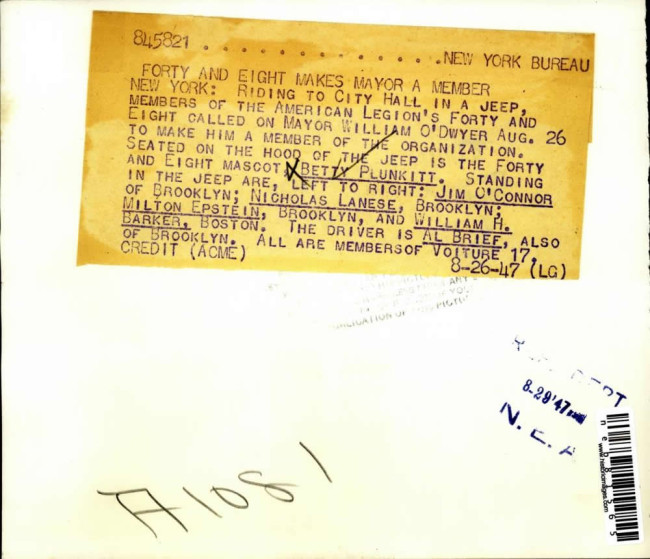 845821 . . . . . . . . . . . . . . NEW YORK BUREAU
FORTY AND EIGHT MAKES MAYOR A MEMBER
NEW YORK: RIDING TO CITY HALL IN A JEEP,
MEMBERS OF THE AMERICAN LEGION'S FORTY AND
EIGHT CALLED ON MAYOR WILLIAM O'DWYER AUG. 26
TO MAKE HIM A MEMBER OF THE ORGANIZATION.
SEATED ON THE HOOD OF THE JEEP IS THE FORTY
AND EIGHT MASCOT, BETTY PLUNKITT. STANDING
IN THE JEEP ARE, LEFT TO RIGHT: JIM O'CONNOR
OF BROOKLYN; NICHOLAS LANESE, BROOKLYN;
MILTON EPSTEIN, BROOKLYN, AND WILLIAM H.
BARKER, BOSTON. THE DRIVER IS AL BRIEF, ALSO
OF BROOKLYN. ALL ARE MEMBERSOF VOITURE 17.
CREDIT (ACME) 8-26-47 (LG)
OF THIS
8-29'47
N. E. A
A1081
www.historicimages.com